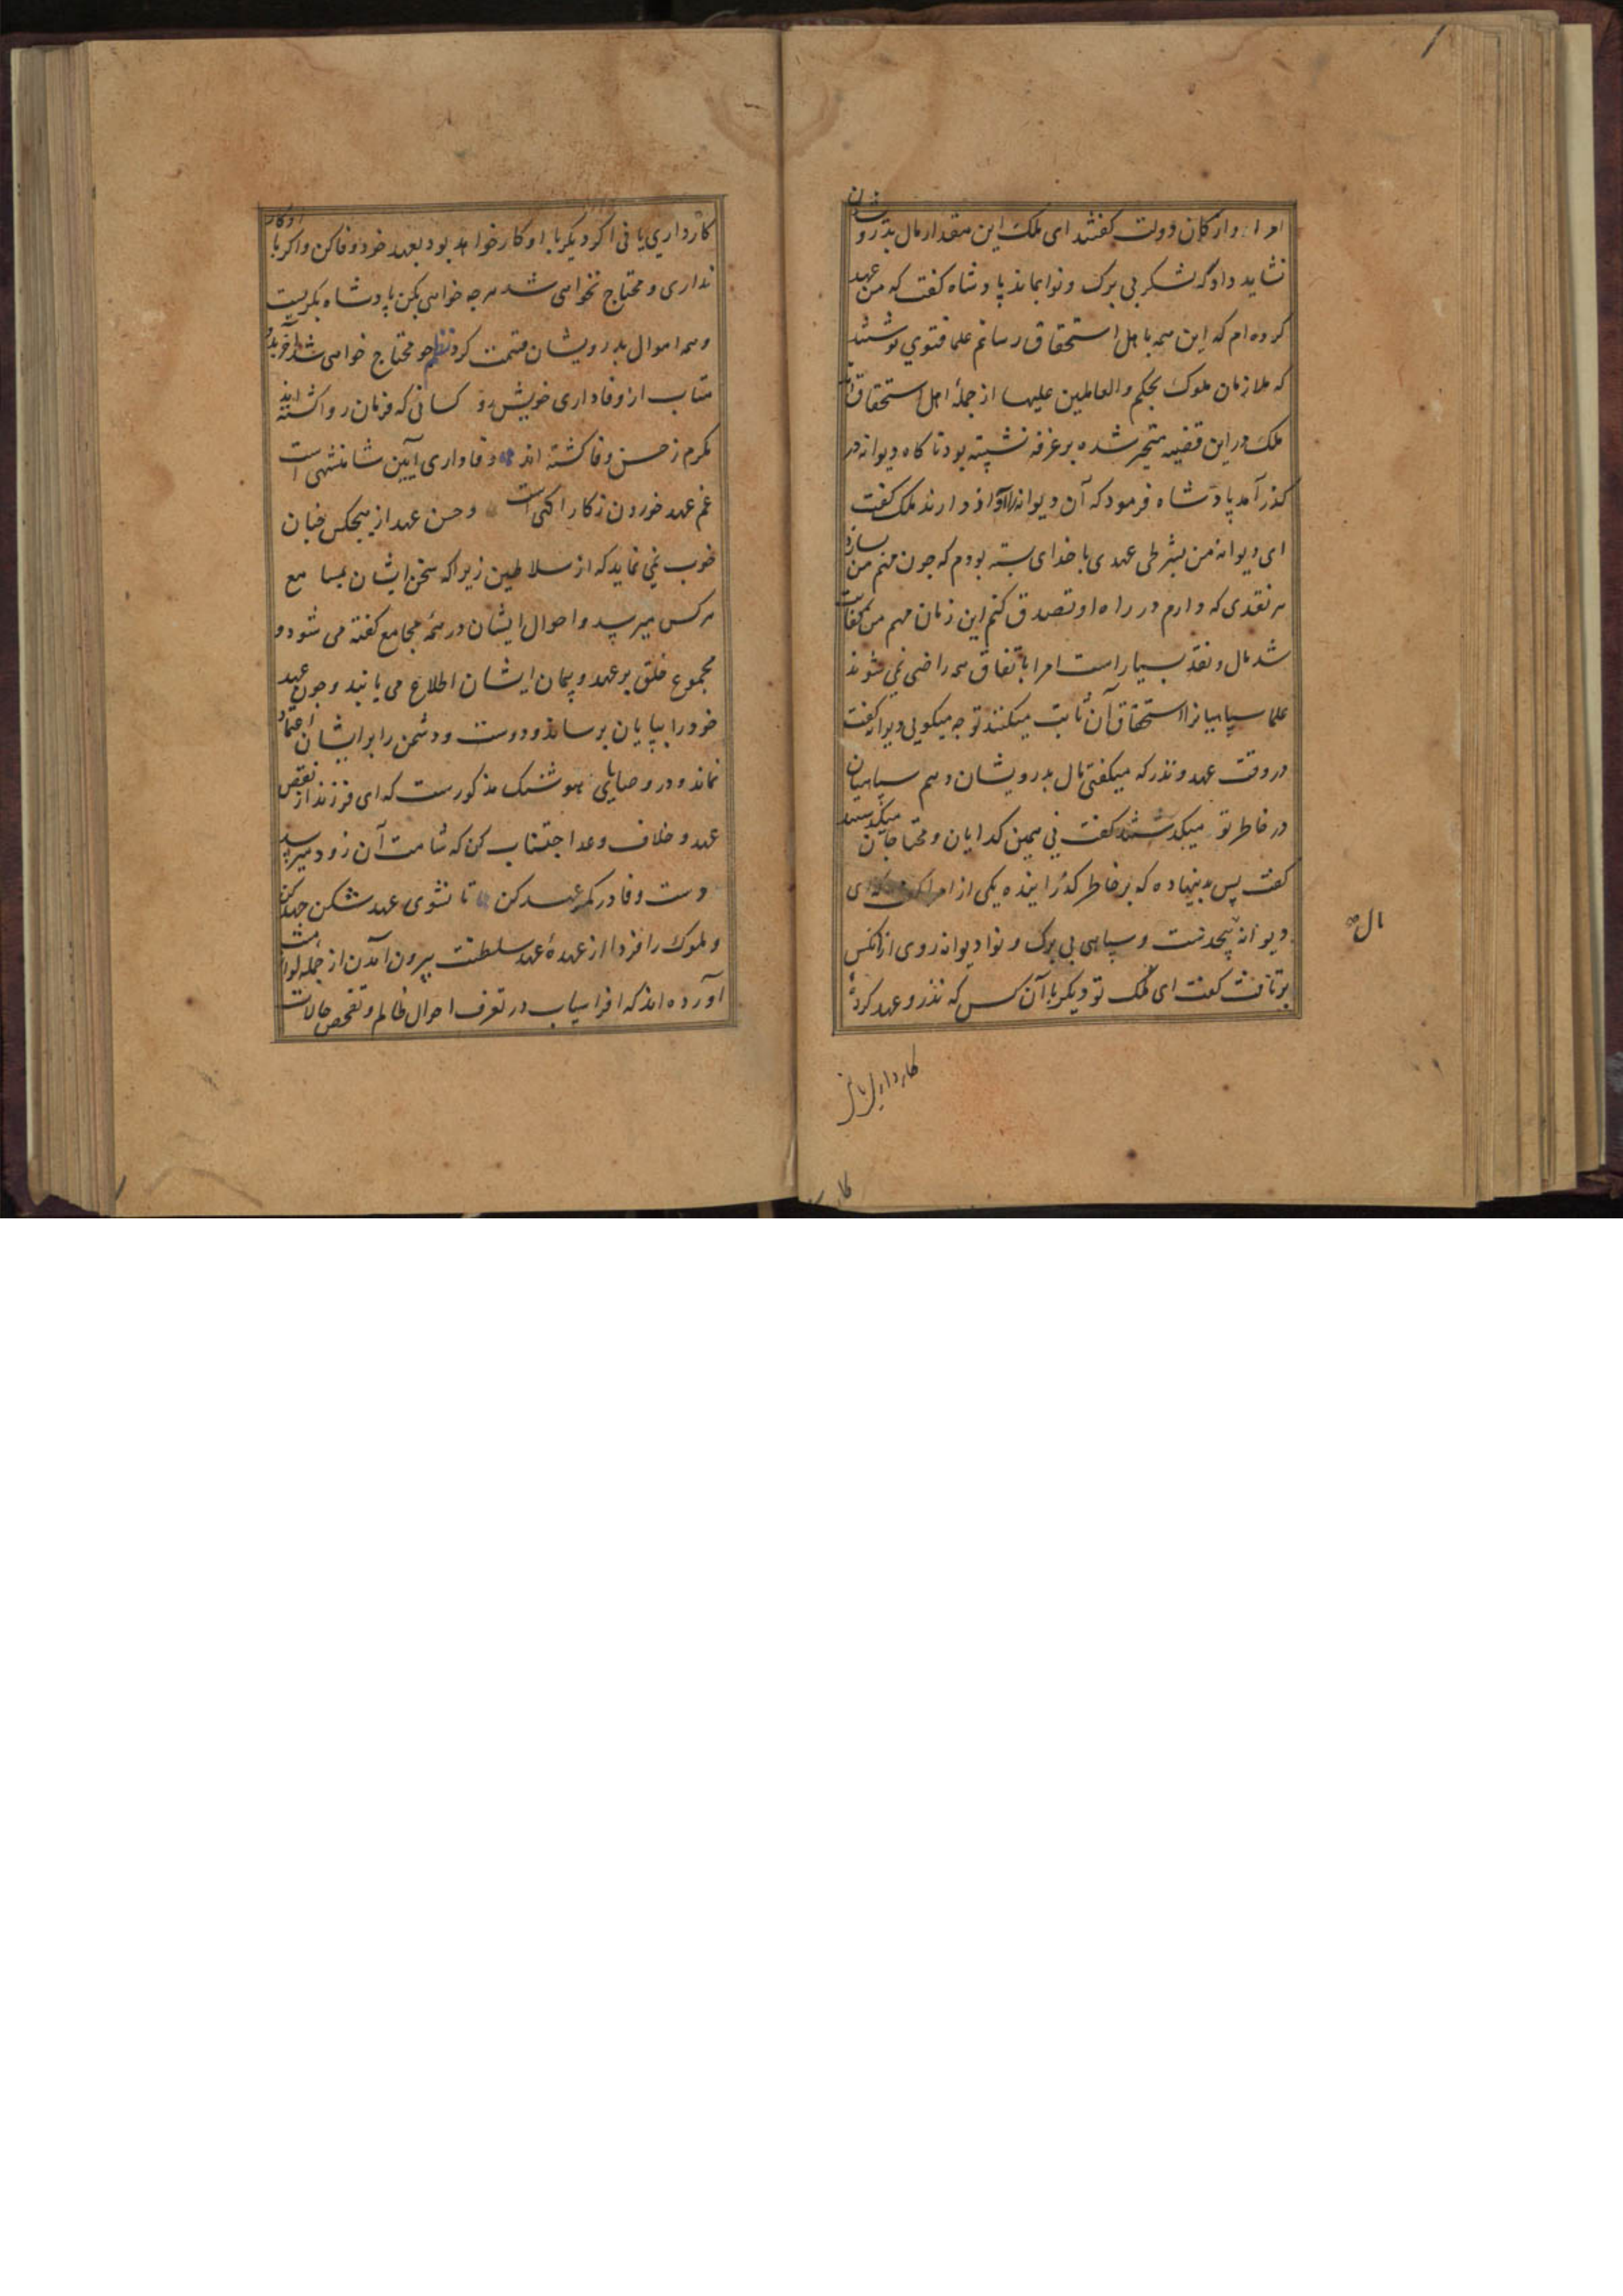 امرا و ارکان دولت کفتند ای ملک این مقدار مال بدرویشان
نشاید داد که لشکر بی برک و نوا بماند پادشاه کفت که من عهد
کرده ام که این همه باهل استحقاق رسانم علما فتوی نوشتند
که ملازمان ملوک بحکم والعاملین علیها از جملهٔ اهل استحقاق اند
ملک در این قضیه متحیر شده بر غرفه نشسته بود ناکاه دیوانه در
کذر آمد پادشاه فرمود که آن دیوانه را آواز دارند ملک کفت
ای دیوانه من بشرطی عهدی با خدای بسته بودم که چون مهم من سازد
هر نقدی که دارم در راه او تصدق کنم این زمان مهم من کفایت
شد مال و نقد بسیار است امرا باتفاق همه راضی نمی شوند
علما سپاهیانرا استحقاق آن ثابت میکنند تو چه میکویی دیوانه کفت
در وقت عهد و نذر که میکفتی مال بدرویشان دهم سپاهیان
در خاطر تو میکدشتند کفت نی همین کدایان و محتاجان میکدشتند
کفت پس بدینها ده که بر خاطر کذرانیده یکی از امرا کفت که ای
دیوانه بیحدست و سپاهی بی برک و نوا دیوانه روی ازانکس
برتافت کفت ای ملک تو دیکر با آن کس که نذر و عهد کردهٔ
مال صح
کارداری یا نی
کارداری یا نی اکر دیکر با او کار خواهد بود بعهد خود وفا کن و اکر با او کار
نداری و محتاج نخواهی شد هرچه خواهی بکن پادشاه بکریست
و همه اموال بدرویشان قسمت کرد نظم چو محتاج خواهی شدن
متاب از وفاداری خویش رو کسانی که فرمان روا کشته اند
مکرم ز حسن وفا کشته اند وفاداری آیین شاهنشهی است
غم عهد خوردن ز کار آکهی است و حسن عهد از هیچکس چنان
خوب نمی نماید که از سلاطین زیرا که سخن ایشان بمسامع
هر کس میرسد و احوال ایشان در همه مجامع کفته می شود و
مجموع خلق بر عهد و پیمان ایشان اطلاع می یابند و چون عهد
خود را بپایان برسانند دوست و دشمن را بر ایشان اعتماد
نماند و در وصایای هوشنک مذکورست که ای فرزند از نقض
عهد و خلاف وعد اجتناب کن که شامت آن زود میرسد
دست وفا در کمر عهد کن تا نشوی عهد شکن جهد کن
و ملوک را از عهدهٔ عهد سلطنت بیرون آمدن از جمله لوازمست
آورده اند که افراسیاب در تعرف احوال ظالم و تفحص حالات